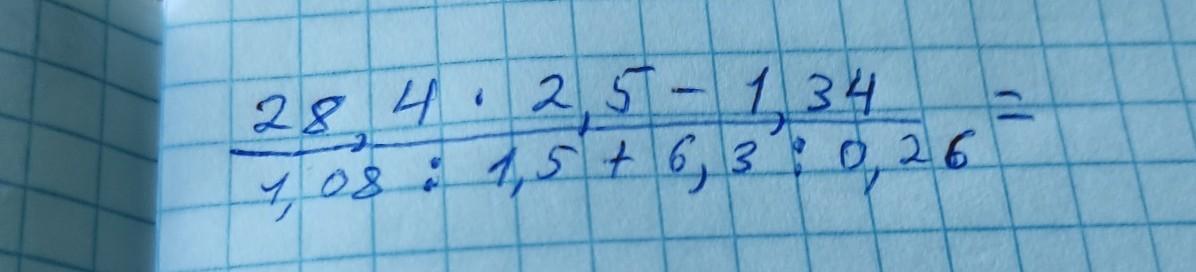 28,4 · 2,5 - 1,34 =
1,08 : 1,5 + 6,3 : 0,26